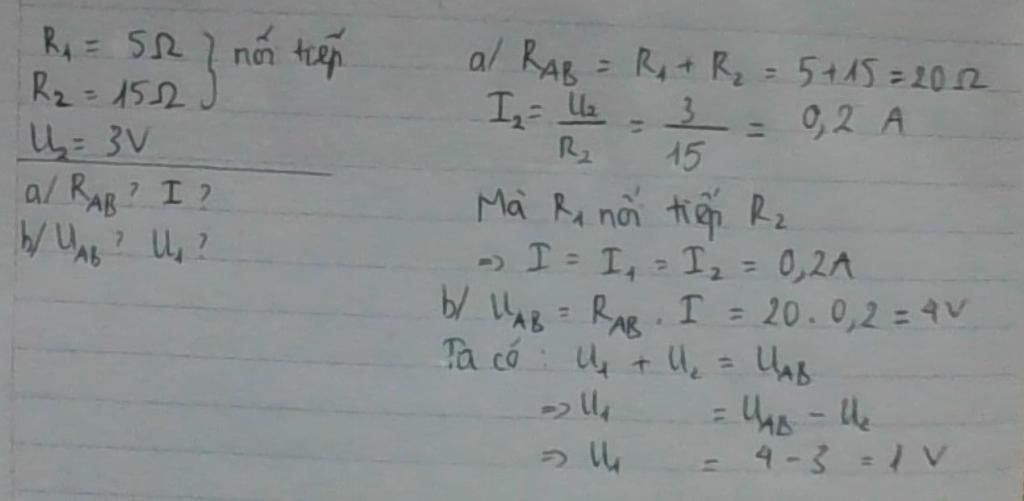 R₁ = 5Ω } nối tiếp
R₂ = 15Ω
U₂ = 3V
a/ R_AB ? I ?
b/ U_AB ? U₁ ?
a/ R_AB = R₁ + R₂ = 5+15 = 20Ω
I₂ = U₂/R₂ = 3/15 = 0,2 A
Mà R₁ nối tiếp R₂
=> I = I₁ = I₂ = 0,2A
b/ U_AB = R_AB . I = 20 . 0,2 = 4V
Ta có : U₁ + U₂ = U_AB
=> U₁ = U_AB - U₂
=> U₁ = 4 - 3 = 1 V